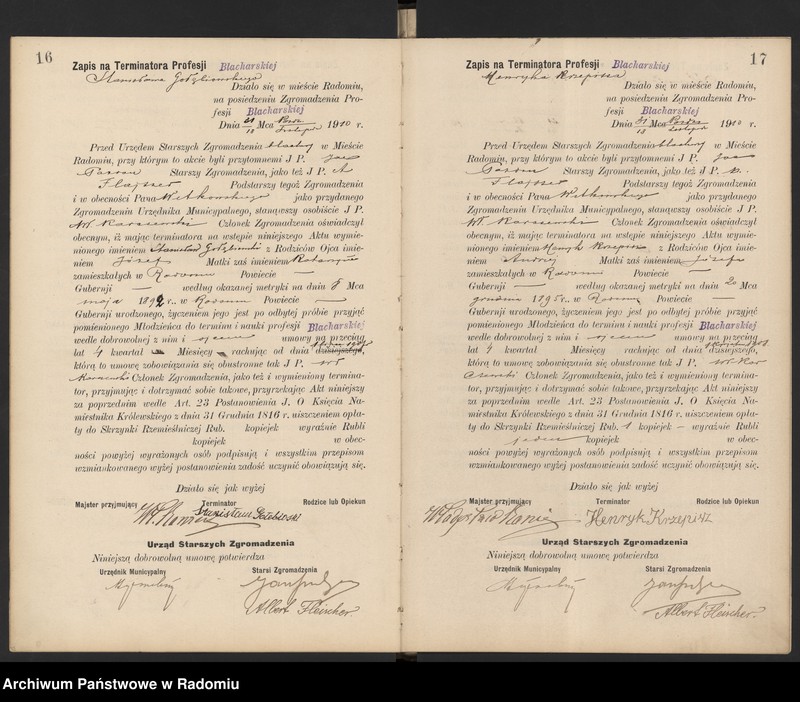 16
Zapis na Terminatora Profesji Blacharskiej
Stanisława Gołębiowskiego
Działo się w mieście Radomiu,
na posiedzeniu Zgromadzenia Pro-
fesji Blacharskiej
Dnia Mca 1910 r.
Przed Urzędem Starszych Zgromadzenia w Mieście
Radomiu, przy którym to akcie byli przytomnemi J P. Jan
Starszy Zgromadzenia, jako też J P. A
Podstarszy tegoż Zgromadzenia
i w obecności Pana Witkowskiego jako przydanego
Zgromadzeniu Urzędnika Municypalnego, stanąwszy osobiście J P.
Członek Zgromadzenia oświadczył
obecnym, iż mając terminatora na wstępie niniejszego Aktu wymie-
nionego imieniem Stanisław z Rodziców Ojca imie-
niem Józefa Matki zaś imieniem Katarzyny
zamieszkałych w Radomiu Powiecie —
Gubernji — według okazanej metryki na dniu 8 Mca
maja 1892 r. w Radomiu Powiecie —
Gubernji urodzonego, życzeniem jego jest po odbytej próbie przyjąć
pomienionego Młodzieńca do terminu i nauki profesji Blacharskiej
wedle dobrowolnej z nim i ojcem umowy na przeciąg
lat 4 kwartał — Miesięcy — rachując od dnia dzisiejszego,
którą to umowę zobowiązania się obustronne tak J P.
Członek Zgromadzenia, jako też i wymieniony termina-
tor, przyjmując i dotrzymać sobie takowe, przyrzekając Akt niniejszy
za poprzednim wedle Art. 23 Postanowienia J. O Księcia Na-
miestnika Królewskiego z dnia 31 Grudnia 1816 r. uiszczeniem opła-
ty do Skrzynki Rzemieślniczej Rub. kopiejek wyraźnie Rubli
kopiejek w obec-
ności powyżej wyrażonych osób podpisują i wszystkim przepisom
wzmiankowanego wyżej postanowienia zadość uczynić obowiązują się.
Działo się jak wyżej
Majster przyjmujący Terminator Rodzice lub Opiekun
Urząd Starszych Zgromadzenia
Niniejszą dobrowolną umowę potwierdza
Urzędnik Municypalny Starsi Zgromadzenia
Albert Fleischer.
17
Zapis na Terminatora Profesji Blacharskiej
Henryka
Działo się w mieście Radomiu,
na posiedzeniu Zgromadzenia Pro-
fesji Blacharskiej
Dnia Mca 1910 r.
Przed Urzędem Starszych Zgromadzenia w Mieście
Radomiu, przy którym to akcie byli przytomnemi J P. Jan
Starszy Zgromadzenia, jako też J P.
Podstarszy tegoż Zgromadzenia
i w obecności Pana Witkowskiego jako przydanego
Zgromadzeniu Urzędnika Municypalnego, stanąwszy osobiście J P.
Członek Zgromadzenia oświadczył
obecnym, iż mając terminatora na wstępie niniejszego Aktu wymie-
nionego imieniem Henryk z Rodziców Ojca imie-
niem Andrzej Matki zaś imieniem Józefa
zamieszkałych w Radomiu Powiecie —
Gubernji — według okazanej metryki na dniu 20 Mca
grudnia 1895 r. w Radomiu Powiecie —
Gubernji urodzonego, życzeniem jego jest po odbytej próbie przyjąć
pomienionego Młodzieńca do terminu i nauki profesji Blacharskiej
wedle dobrowolnej z nim i ojcem umowy na przeciąg
lat 4 kwartał Miesięcy rachując od dnia dzisiejszego,
którą to umowę zobowiązania się obustronne tak J P.
Członek Zgromadzenia, jako też i wymieniony termina-
tor, przyjmując i dotrzymać sobie takowe, przyrzekając Akt niniejszy
za poprzednim wedle Art. 23 Postanowienia J. O Księcia Na-
miestnika Królewskiego z dnia 31 Grudnia 1816 r. uiszczeniem opła-
ty do Skrzynki Rzemieślniczej Rub. 1 kopiejek — wyraźnie Rubli
jeden kopiejek w obec-
ności powyżej wyrażonych osób podpisują i wszystkim przepisom
wzmiankowanego wyżej postanowienia zadość uczynić obowiązują się.
Działo się jak wyżej
Majster przyjmujący Terminator Rodzice lub Opiekun
Henryk
Urząd Starszych Zgromadzenia
Niniejszą dobrowolną umowę potwierdza
Urzędnik Municypalny Starsi Zgromadzenia
Albert Fleischer.
Archiwum Państwowe w Radomiu